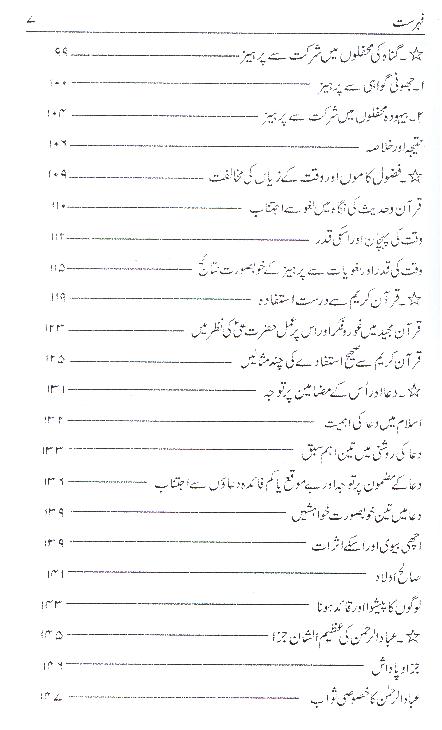 فہرست ۷
☆۔گناہ کی محفلوں میں شرکت سے پرہیز ۹۹
۱۔جھوٹی گواہی سے پرہیز ۱۰۰
۲۔بیہودہ محفلوں میں شرکت سے پرہیز ۱۰۴
نتیجہ اور خلاصہ ۱۰۶
☆۔فضول کاموں اور وقت کے زیاں کی مخالفت ۱۰۹
قرآن وحدیث کی نگاہ میں لغو سے اجتناب ۱۱۰
وقت کی پہچان اور اسکی قدر ۱۱۲
وقت کی قدر اور لغویات سے پرہیز کے خوبصورت نتائج ۱۱۵
☆۔قرآن کریم سے درست استفادہ ۱۱۹
قرآن مجید میں غور وفکر اور اس پر عمل حضرت علیؑ کی نظر میں ۱۲۳
قرآن کریم سے صحیح استفادے کی چند مثالیں ۱۲۵
☆۔دعا اور اُس کے مضامین پر توجہ ۱۳۱
اسلام میں دعا کی اہمیت ۱۳۲
دعا کی روشنی میں تین اہم سبق ۱۳۳
دعا کے مضمون پر توجہ اور بے موقع یا کم فائدہ دعاؤں سے اجتناب ۱۳۶
دعا میں تین خوبصورت خواہشیں ۱۳۹
اچھی بیوی اور اسکے اثرات ۱۳۹
صالح اولاد ۱۴۱
لوگوں کا پیشوا اور قائد ہونا ۱۴۳
☆۔عباد الرحمٰن کی عظیم الشان جزا ۱۴۵
جزا و پاداش ۱۴۶
عباد الرحمٰن کا خصوصی ثواب ۱۴۷